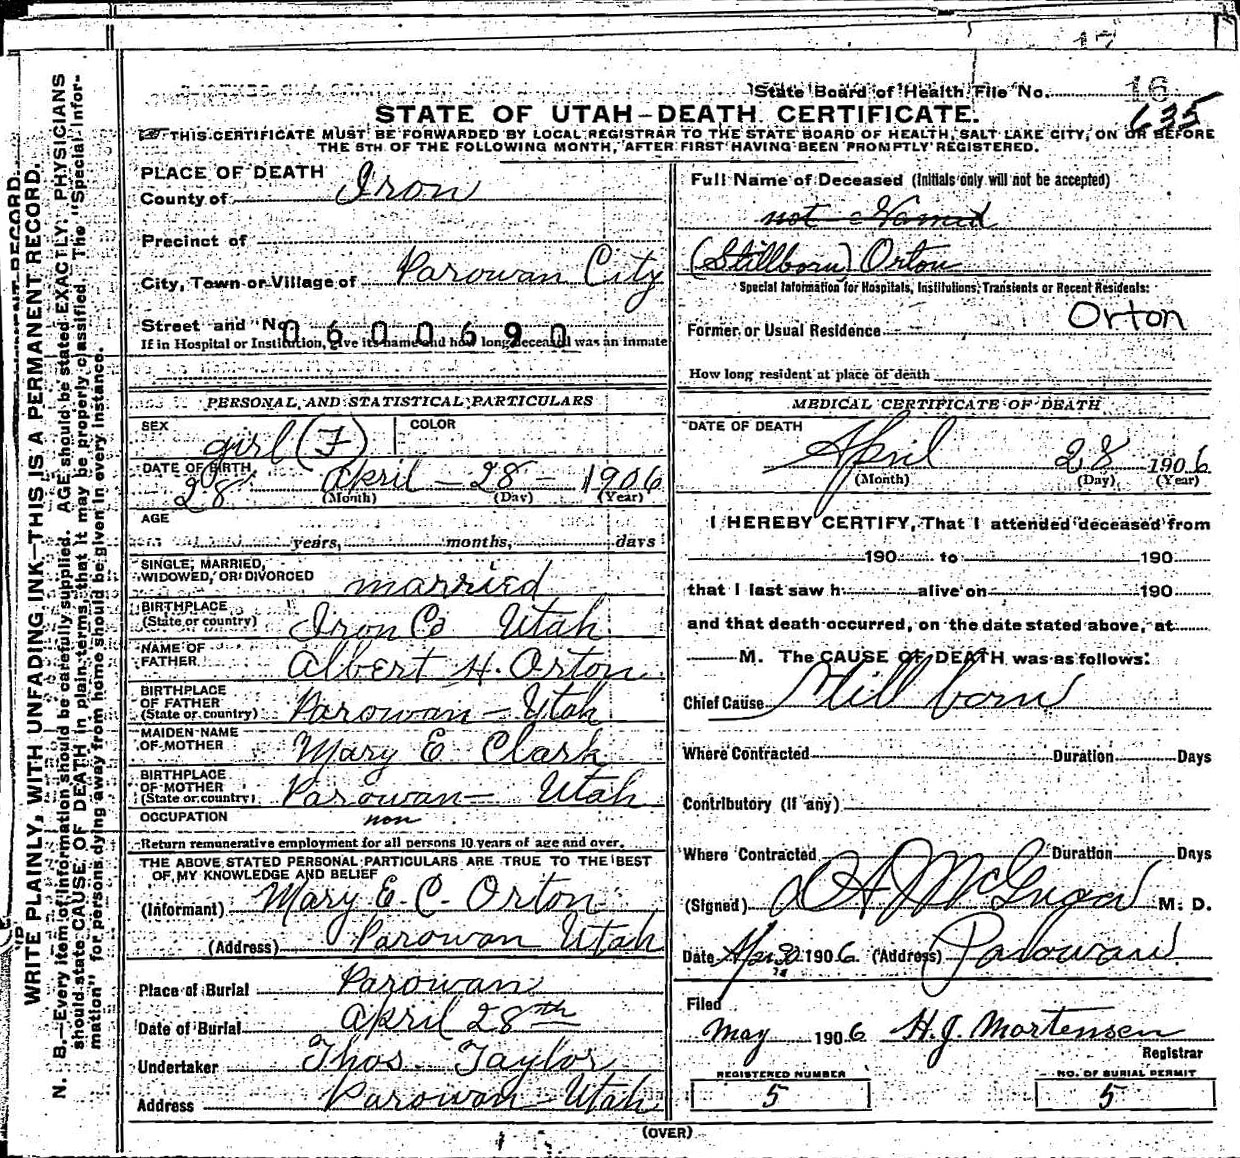 17
State Board of Health File No. 16
635
STATE OF UTAH—DEATH CERTIFICATE.
THIS CERTIFICATE MUST BE FORWARDED BY LOCAL REGISTRAR TO THE STATE BOARD OF HEALTH, SALT LAKE CITY, ON OR BEFORE
THE 5TH OF THE FOLLOWING MONTH, AFTER FIRST HAVING BEEN PROMPTLY REGISTERED.
WRITE PLAINLY, WITH UNFADING INK—THIS IS A PERMANENT RECORD.
N. B.—Every item of information should be carefully supplied. AGE should be stated EXACTLY. PHYSICIANS
should state CAUSE OF DEATH in plain terms, that it may be properly classified. The "Special Infor-
mation" for persons dying away from home should be given in every instance.
PLACE OF DEATH
County of Iron
Precinct of
City, Town or Village of Parowan City
Street and No.
0600690
If in Hospital or Institution, give its name and how long deceased was an inmate
PERSONAL AND STATISTICAL PARTICULARS
SEX girl (F) COLOR
DATE OF BIRTH
28 April — 28 — 1906
(Month) (Day) (Year)
AGE
years, months, days
SINGLE, MARRIED,
WIDOWED, OR DIVORCED married
BIRTHPLACE
(State or country) Iron Co Utah
NAME OF
FATHER Albert H. Orton
BIRTHPLACE
OF FATHER
(State or country) Parowan — Utah
MAIDEN NAME
OF MOTHER Mary E Clark
BIRTHPLACE
OF MOTHER
(State or country) Parowan — Utah
OCCUPATION non
Return remunerative employment for all persons 10 years of age and over.
THE ABOVE STATED PERSONAL PARTICULARS ARE TRUE TO THE BEST
OF MY KNOWLEDGE AND BELIEF
(Informant) Mary E. C. Orton
(Address) Parowan Utah
Place of Burial Parowan
Date of Burial April 28th
Undertaker Thos. Taylor
Address Parowan — Utah
Full Name of Deceased (Initials only will not be accepted)
not Named
(Stillborn) Orton
Special Information for Hospitals, Institutions, Transients or Recent Residents:
Former or Usual Residence Orton
How long resident at place of death
MEDICAL CERTIFICATE OF DEATH
DATE OF DEATH
April 28 1906
(Month) (Day) (Year)
I HEREBY CERTIFY, That I attended deceased from
190 to 190
that I last saw h alive on 190
and that death occurred, on the date stated above, at
M. The CAUSE OF DEATH was as follows:
Chief Cause Still born
Where Contracted Duration Days
Contributory (if any)
Where Contracted Duration Days
(Signed) M. D.
Date Apr 30 1906. (Address) Parowan.
Filed
May 1906 H. J. Mortensen
Registrar
REGISTERED NUMBER
5
NO. OF BURIAL PERMIT
5
(OVER)